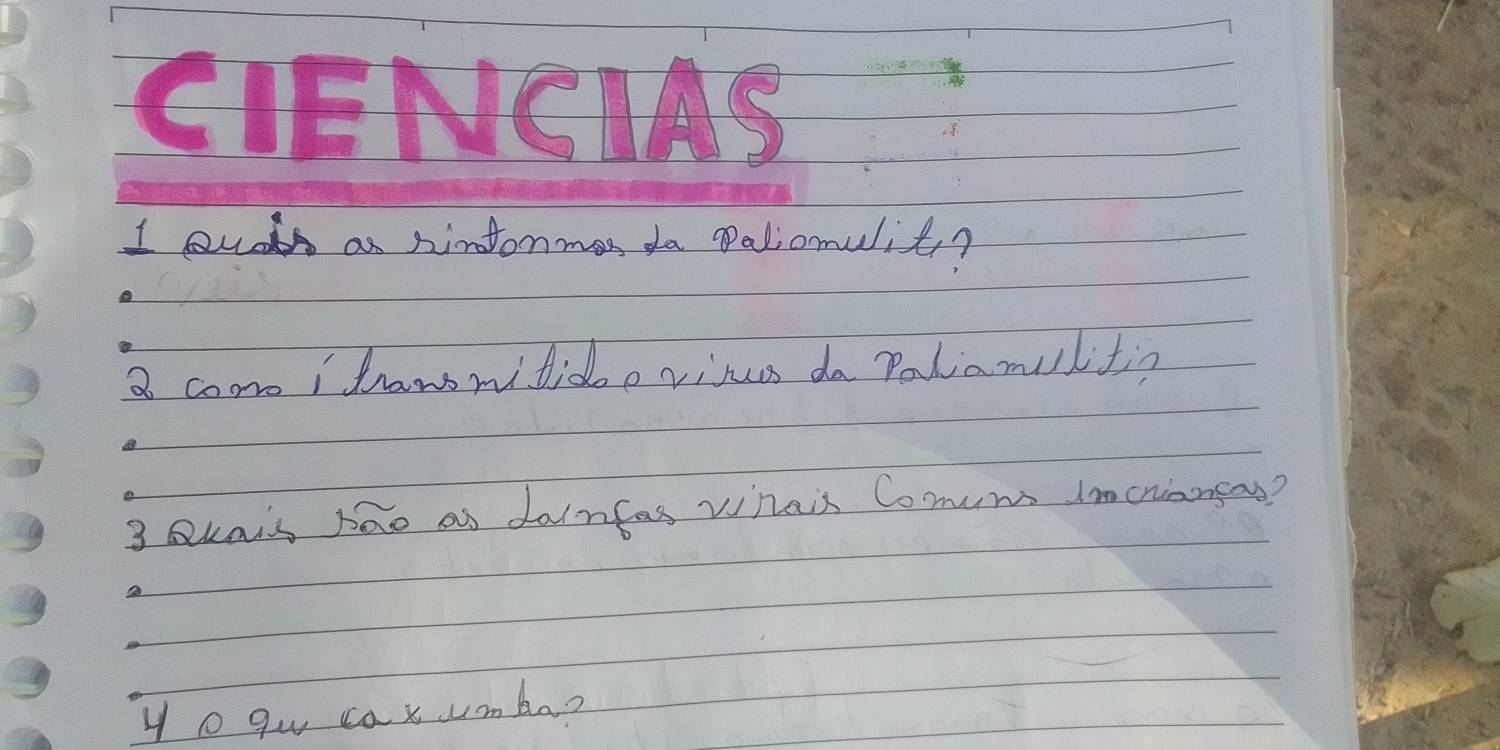 CIENCIAS
1 Quais as sintonmas da Paliomulit?
2 como i transmitido o virus da Paliamulitin
3 Quais são as doinças virais Comuns im crianças?
4 o qu caxumba?